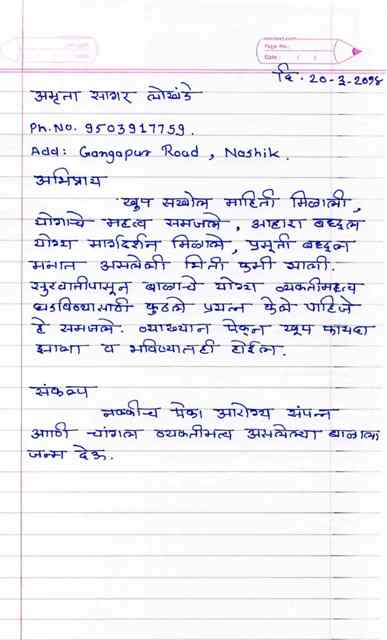 Page No.:
Date: / /
दि. 20-3-2018
अमृता सागर लोखंडे
Ph.No. 9503917759.
Add: Gangapur Road, Nashik.
अभिप्राय
खूप सखोल माहिती मिळाली,
योगाचे महत्व समजले, आहारा बद्दल
योग्य मार्गदर्शन मिळाले, प्रसूती बद्दल
मनात असलेली भिती कमी झाली.
सुरवातीपासून बाळाचे योग्य व्यक्तीमहत्व
घडविण्यासाठी कुठले प्रयत्न केले पाहिजे
हे समजले. व्याख्यान ऐकून खूप फायदा
झाला व भविष्यातही होईल.
संकल्प
नक्कीच ऐका आरोग्य संपन्न
आणि चांगल व्यक्तीमत्व असलेल्या बाळाला
जन्म देऊ.